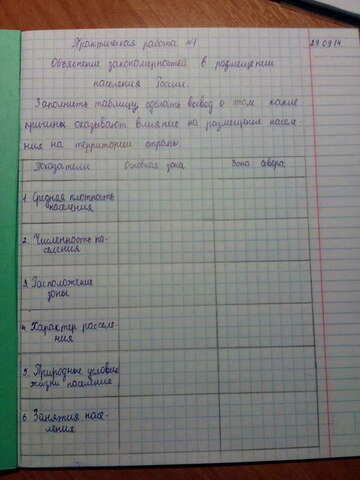 29.09.14
Практическая работа №1
Объяснение закономерностей в размещении
населения России.
Заполнить таблицу, сделать вывод о том какие
причины оказывают влияние на размещение населе-
ния на территории страны.
Показатели Основная зона Зона севера.
1. Средняя плотность
населения
2. Численность на-
селения
3. Расположение
зоны
4. Характер расселе-
ния
5. Природные условия
жизни населения
6. Занятия насе-
ления